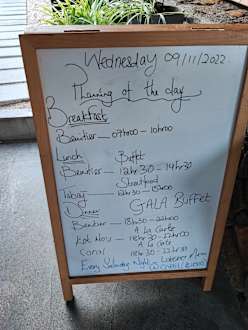 Wednesday 09/11/2022
Planning of the day
Breakfast
Benitier — 07h00 - 10h00
Lunch Buffet
Benitier — 12hr30 - 14hr30
Streetfood
12hr30 - 15h00
Dinner GALA BUFFET
Benitier — 18h30 -
A La Carte
Kot Nou — 18hr30 - 22h00
A La Carte
Coral 18hr30 - 22h00
Every Saturday Night